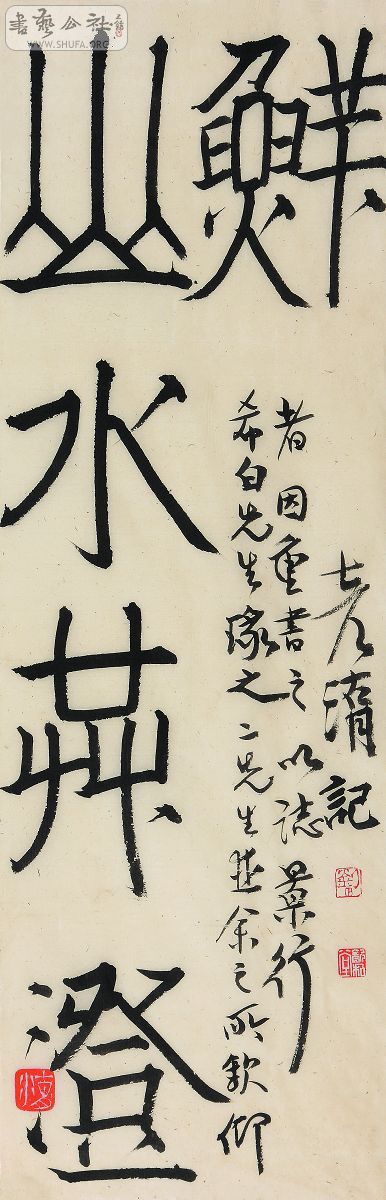 書藝公社
WWW.SHUFA.ORG
山水共澄
鮮
希白先生瑑之二先生並余之所欽仰
者因重書之以誌景行
記